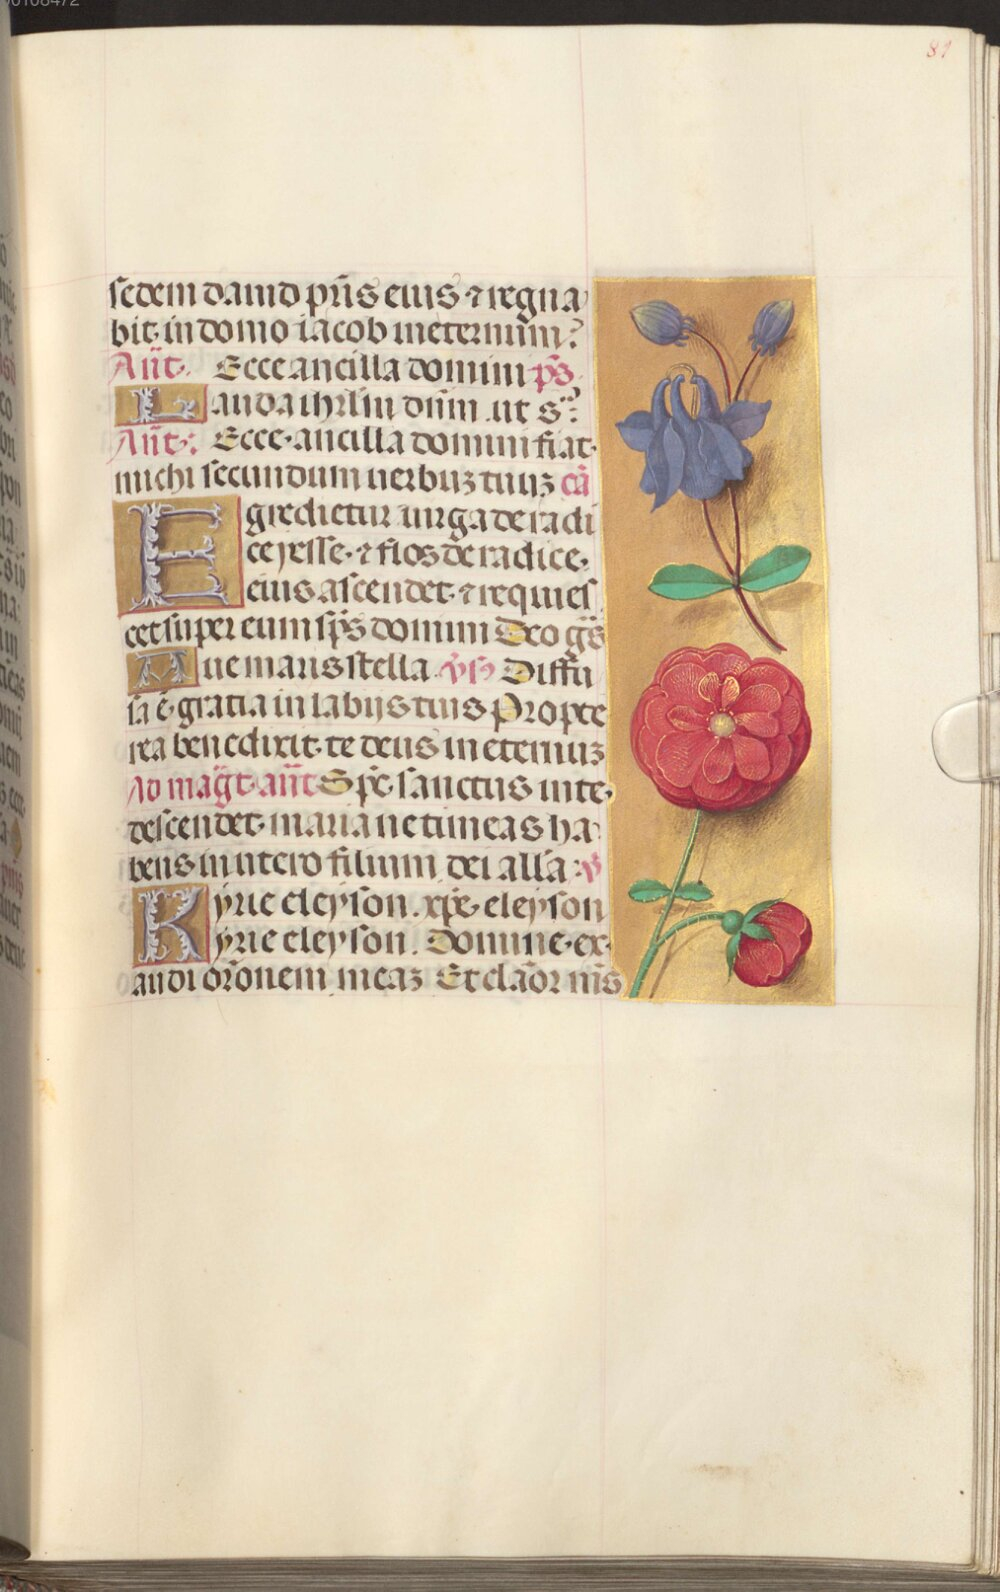 00108472
81
sedem dauid pr̄is eius ⁊ regna
bit in domo iacob in eternum?
Ant̄. Ecce ancilla domini ps̄
Lauda ihrl̄m dn̄m ut sᵃ?
Ant̄: Ecce ancilla domini fiat
michi secundum uerbuꝫ tuuꝫ ca᷑
Egredietur uirga de radi
ce yesse ⁊ flos de radice
eius ascendet ⁊ requies
cet super eum sp̄s domini Deo gr̄s
Aue maris stella vs̄ Diffu
sa ē gratia in labijs tuis Propte
rea benedixit te deus in eternuꝫ
Ad mag̅t ant̄ Sp̄s sanctus in te
descendet maria ne timeas ha
bens in utero filium dei all̄a v̄
Kyrie eleyson xp̄e eleyson
Kyrie eleyson Domine ex
audi or̄onem meaꝫ Et cla̅or m̄s